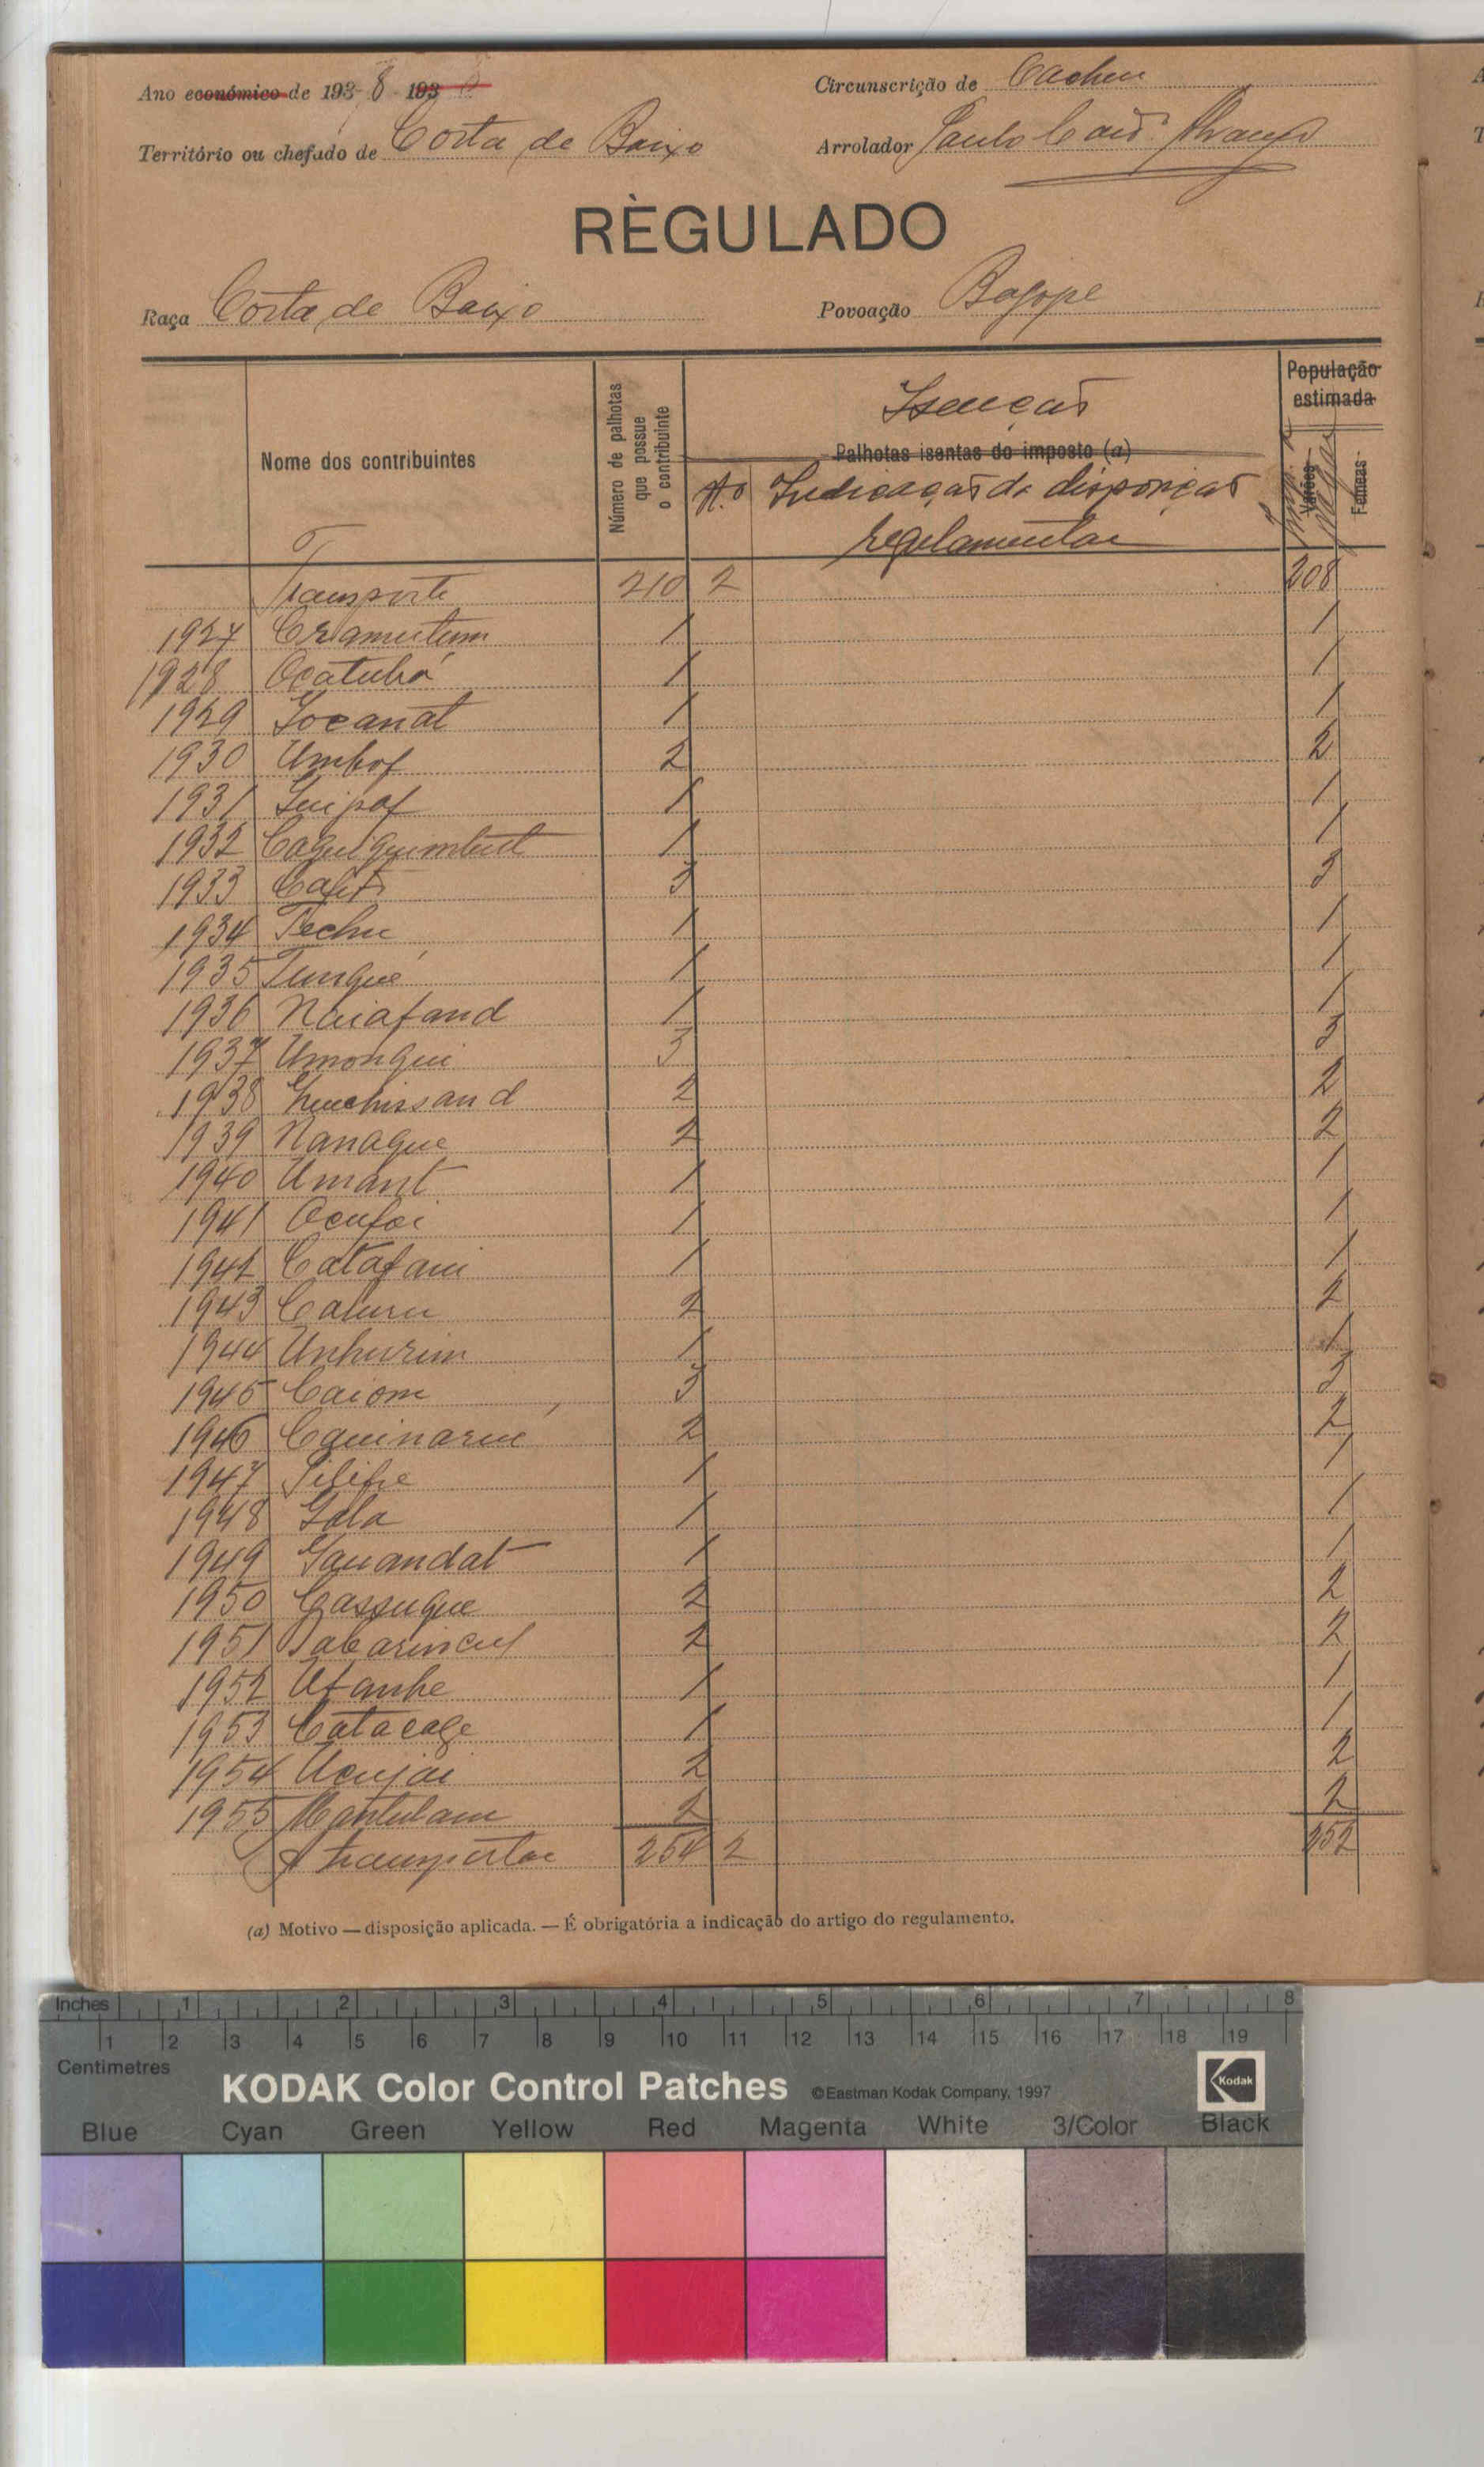 Ano económico de 193-8-193
Circunscrição de Cacheu
Território ou chefado de Costa de Baixo
Arrolador Paulo
RÈGULADO
Raça Costa de Baixo
Povoação Bagope
Nome dos contribuintes
Número de palhotas que possue o contribuinte
Isenção
Palhotas isentas do imposto (a)
N.º Indicação da disposição
regulamentar
População
estimada
Varões
Fêmeas
Transporte 210 2 208
1927 Cramutum 1 1
1928 Ocatubá 1 1
1929 Jocanat 1 1
1930 Umbof 2 2
1931 Guipof 1 1
1932 Caquiquimbut 1 1
1933 Cafit 3 3
1934 Techu 1 1
1935 Tunqué 1 1
1936 Naiafand 1 1
1937 Umonqui 3 3
1938 2 2
1939 Nanaque 2 2
1940 Umant 1 1
1941 Ocufoi 1 1
1942 Catafam 1 1
1943 Caluru 2 2
1944 Unhurim 1 1
1945 Caiom 3 3
1946 Cquinarue 2 2
1947 Filipe 1 1
1948 Gola 1 1
1949 Gauandat 1 1
1950 Gassuque 2 2
1951 2 2
1952 Ufanhe 1 1
1953 1 1
1954 Ucujai 2 2
1955 Mantulam 2 2
A transportar 254 2 252
(a) Motivo — disposição aplicada. — É obrigatória a indicação do artigo do regulamento.
Inches 1 2 3 4 5 6 7 8
1 2 3 4 5 6 7 8 9 10 11 12 13 14 15 16 17 18 19
Centimetres
KODAK Color Control Patches ©Eastman Kodak Company, 1997 Kodak
Blue Cyan Green Yellow Red Magenta White 3/Color Black